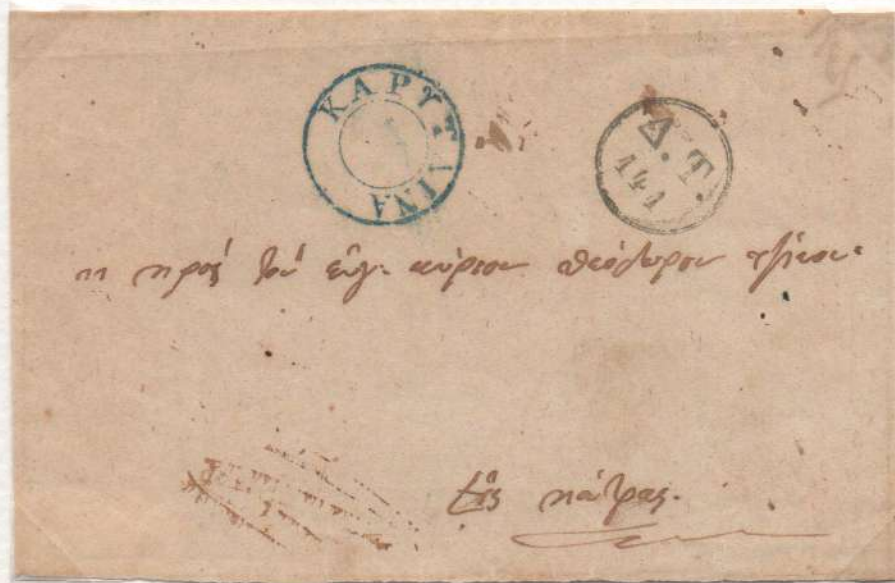 ΚΑΡΥΤΑΙΝΑ
Δ. Τ.
141
πρὸς τὸν εὐγ: κύριον Θεόδωρον
Εἰς πάτρας.